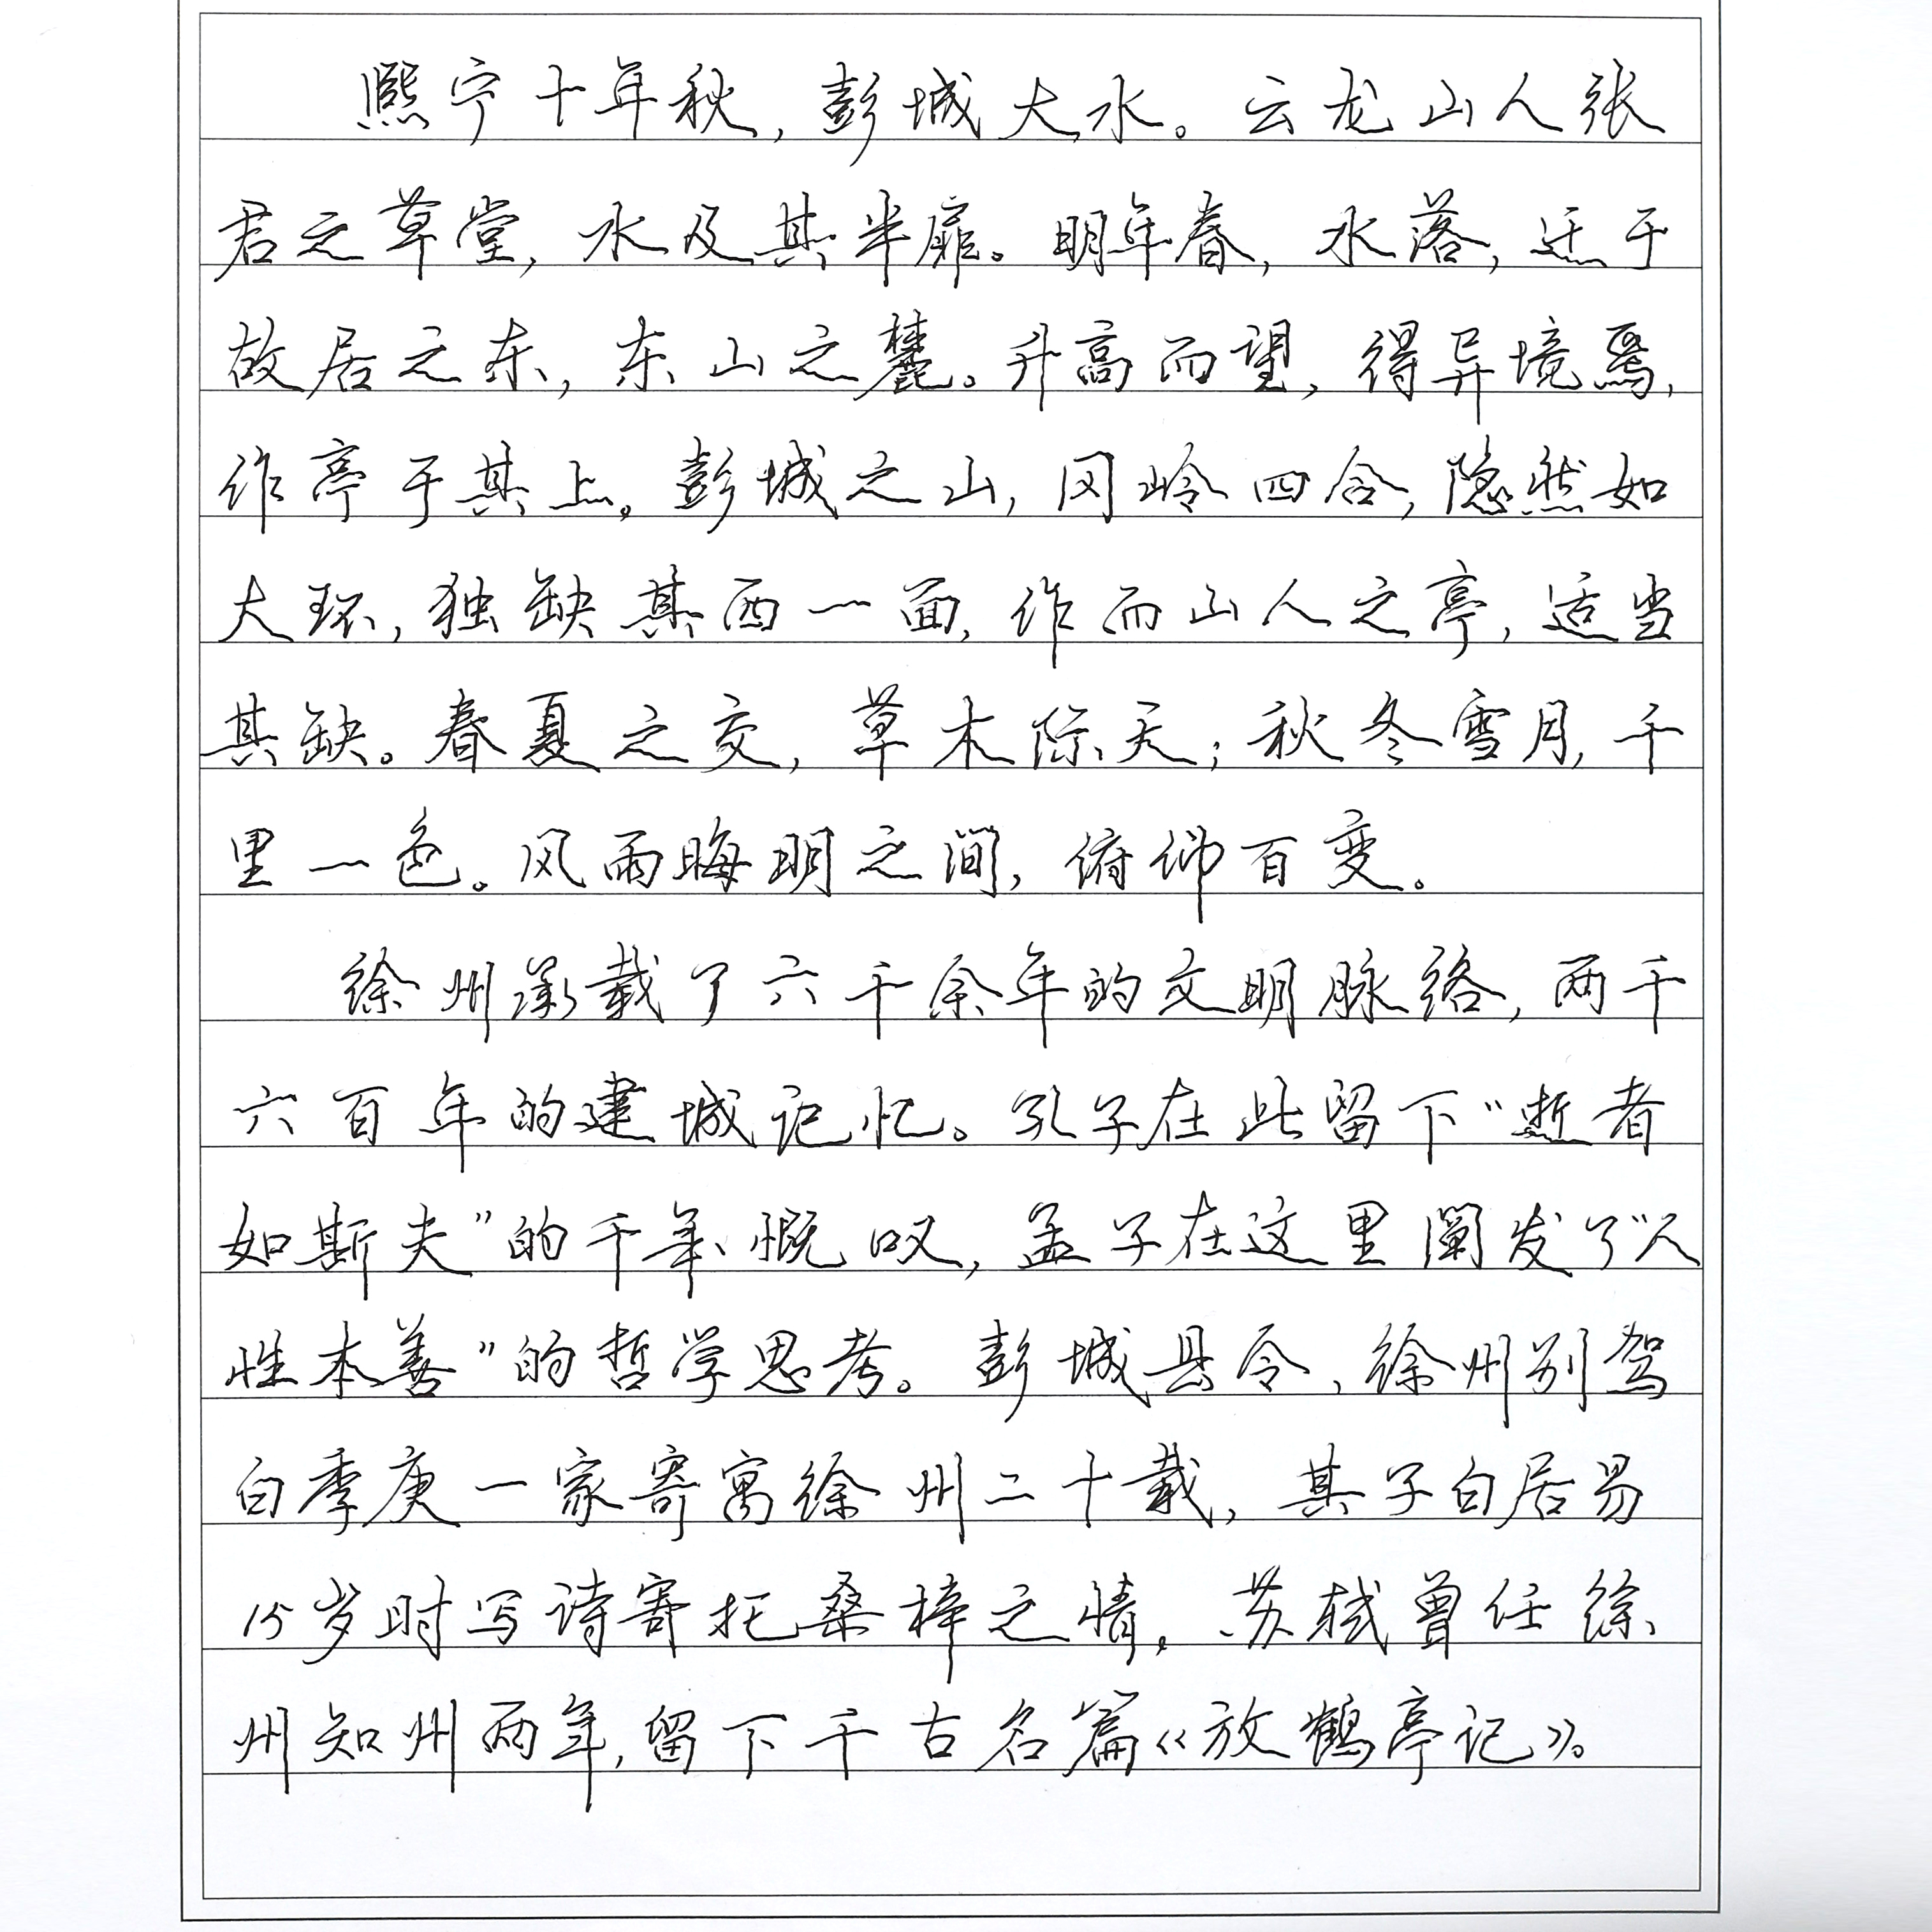 熙宁十年秋，彭城大水。云龙山人张
君之草堂，水及其半扉。明年春，水落，迁于
故居之东，东山之麓。升高而望，得异境焉，
作亭于其上。彭城之山，冈岭四合，隐然如
大环，独缺其西一面，作而山人之亭，适当
其缺。春夏之交，草木际天；秋冬雪月，千
里一色。风雨晦明之间，俯仰百变。
徐州承载了六千余年的文明脉络，两千
六百年的建城记忆。孔子在此留下“逝者
如斯夫”的千年慨叹，孟子在这里阐发了“人
性本善”的哲学思考。彭城县令、徐州别驾
白季庚一家寄寓徐州二十载，其子白居易
15岁时写诗寄托桑梓之情。苏轼曾任徐
州知州两年，留下千古名篇《放鹤亭记》。